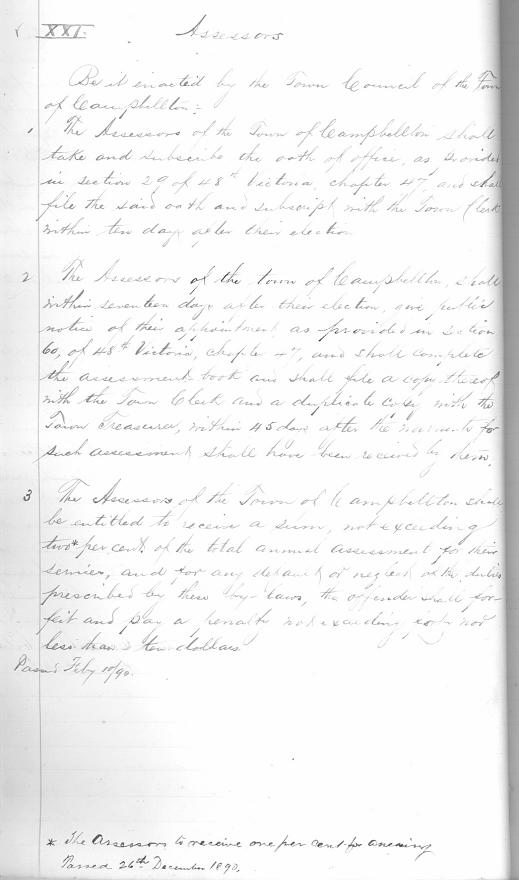 XXI.
Assessors
Be it enacted by the Town Council of the Town
of Campbellton:
1 The Assessors of the Town of Campbellton shall
take and subscribe the oath of office, as provided
in section 29 of 48th Victoria, chapter 47, and shall
file the said oath and subscript with the Town Clerk
within ten days after their election
2 The Assessors of the town of Campbellton, shall
within seventeen days after their election, give public
notice of their appointment as provided in section
60, of 48th Victoria, chapter 47, and shall complete
the assessment book and shall file a copy thereof
with the Town Clerk and a duplicate copy with the
Town Treasurer, within 45 days after the warrants for
such assessment shall have been received by them.
3 The Assessors of the Town of Campbellton shall
be entitled to receive a sum, not exceeding
two* per cent. of the total annual assessment for their
services, and for any default or neglect in the duties
prescribed by these by-laws, the offender shall for-
feit and pay a penalty not exceeding forty nor
less than ten dollars
Passed Feby 10/90.
* The Assessors to receive one per cent for assessing
Passed 26th December 1890.